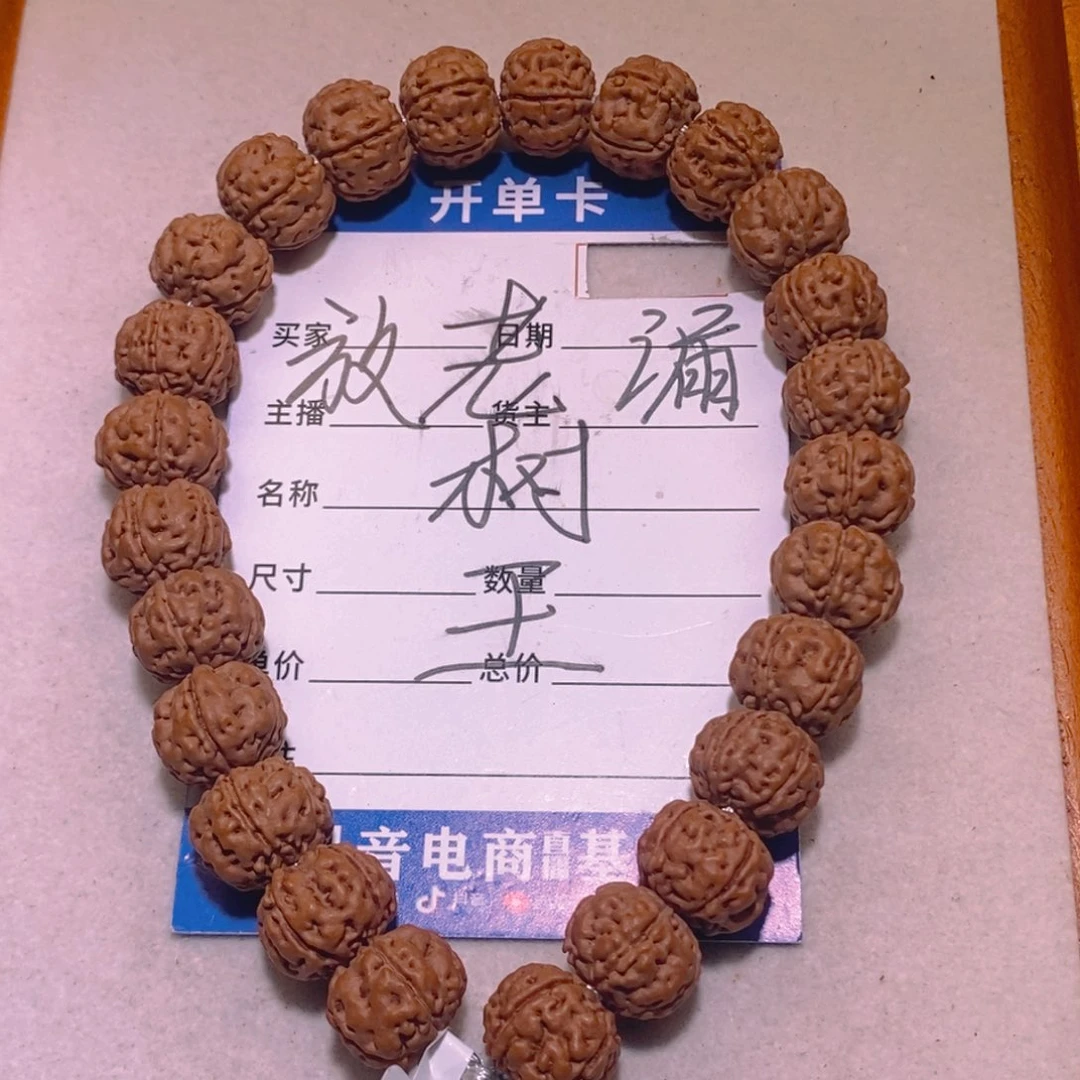 开单卡
买家 日期
放老漏
主播 货主
树
名称
尺寸 数量
王
价 总价
音电商直播基